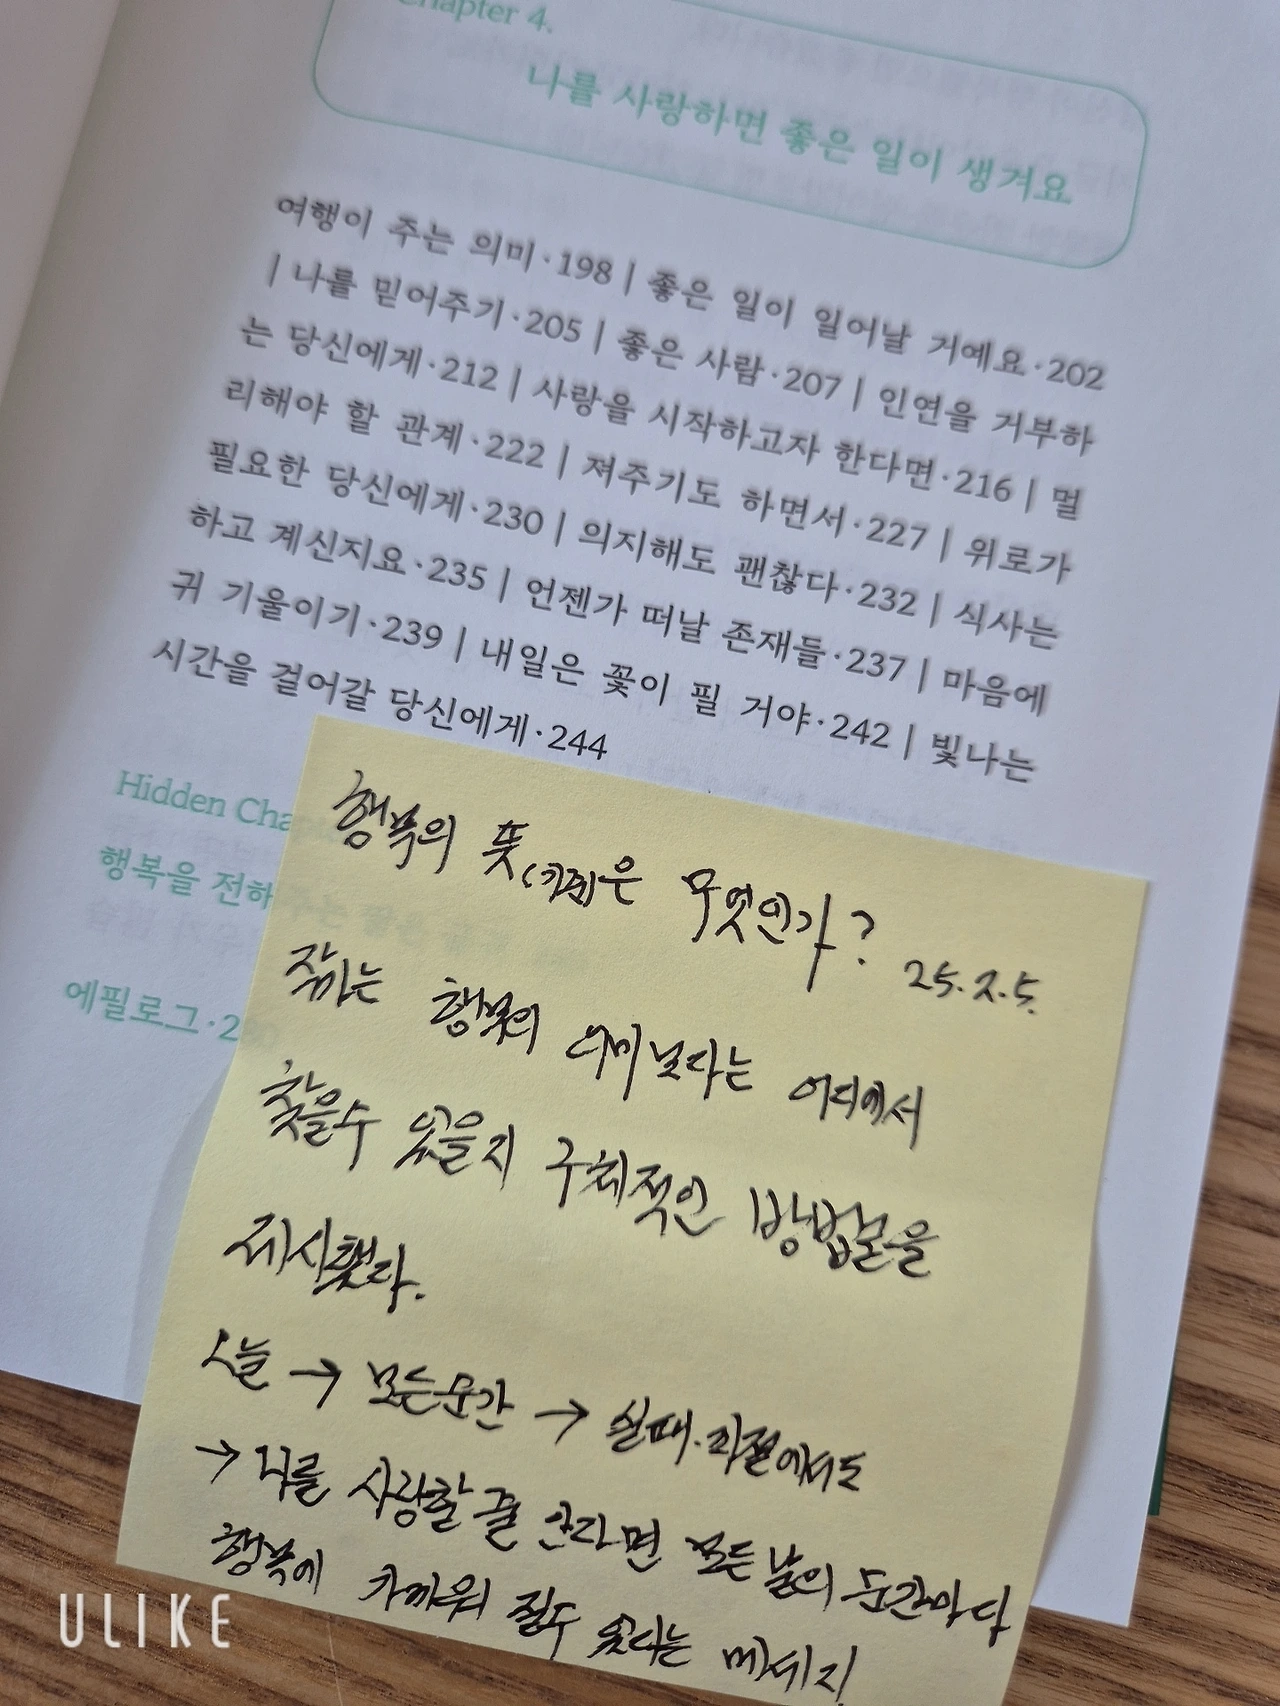 Chapter 4.
나를 사랑하면 좋은 일이 생겨요
여행이 주는 의미·198 | 좋은 일이 일어날 거예요·202
| 나를 믿어주기·205 | 좋은 사람·207 | 인연을 거부하
는 당신에게·212 | 사랑을 시작하고자 한다면·216 | 멀
리해야 할 관계·222 | 져주기도 하면서·227 | 위로가
필요한 당신에게·230 | 의지해도 괜찮다·232 | 식사는
하고 계신지요·235 | 언젠가 떠날 존재들·237 | 마음에
귀 기울이기·239 | 내일은 꽃이 필 거야·242 | 빛나는
시간을 걸어갈 당신에게·244
Hidden Cha
행복을 전하
에필로그·2
행복의 뜻(기준)은 무엇인가?
25.2.5.
작가는 행복의 의미보다는 어디에서
찾을수 있을지 구체적인 방법론을
제시했다.
오늘 → 모든순간 → 실패.좌절에서도
→ 나를 사랑할 줄 안다면 모든 날의 순간마다
행복에 가까워 질수 있다는 메세지
ULIKE